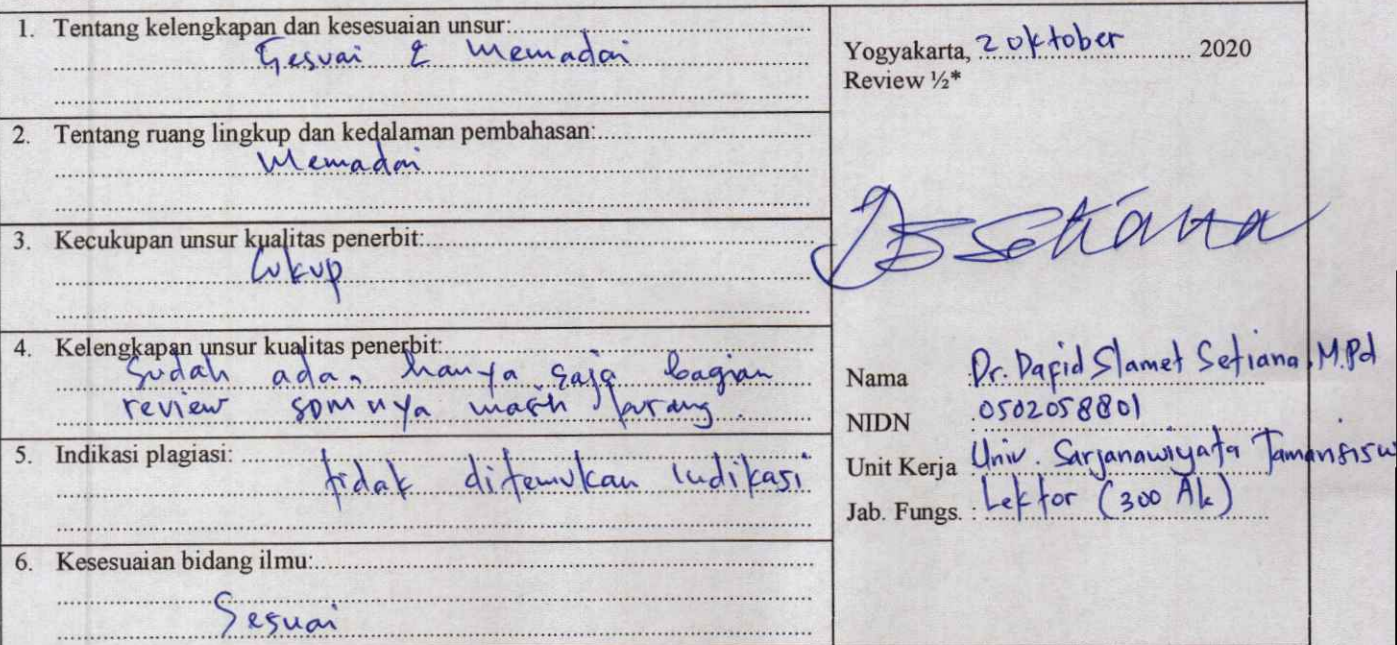 1. Tentang kelengkapan dan kesesuaian unsur:
Sesuai & Memadai
2. Tentang ruang lingkup dan kedalaman pembahasan:
Memadai
3. Kecukupan unsur kualitas penerbit:
Cukup
4. Kelengkapan unsur kualitas penerbit:
Sudah ada, hanya saja bagian
review masih kurang.
5. Indikasi plagiasi:
tidak ditemukan indikasi
6. Kesesuaian bidang ilmu:
Sesuai
Yogyakarta, 2 oktober 2020
Review ½*
Setiana
Nama Dr. Dafid Slamet Setiana, M.Pd
NIDN : 0502058801
Unit Kerja Univ. Sarjanawiyata Tamansisw
Jab. Fungs. : Lektor (300 Ak)